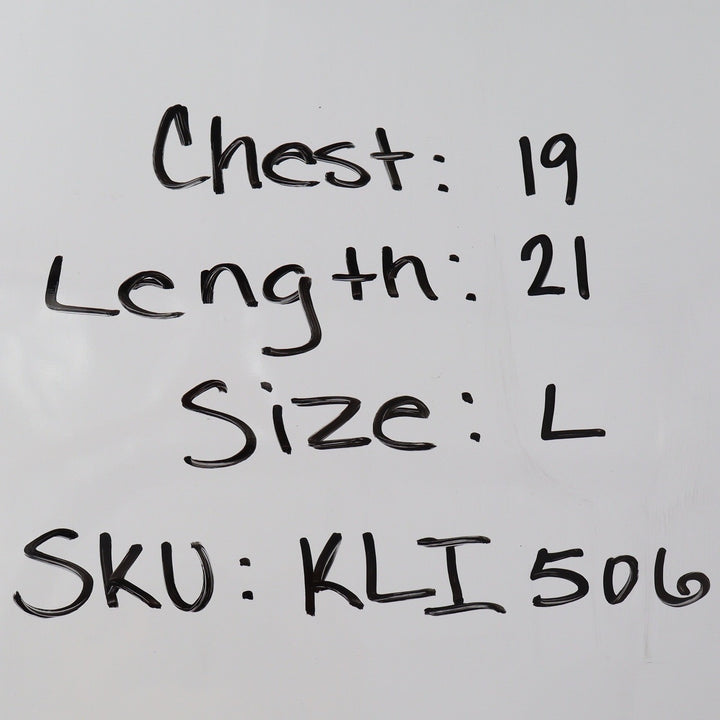 Chest: 19
Length: 21
Size: L
SKU: KLI 506